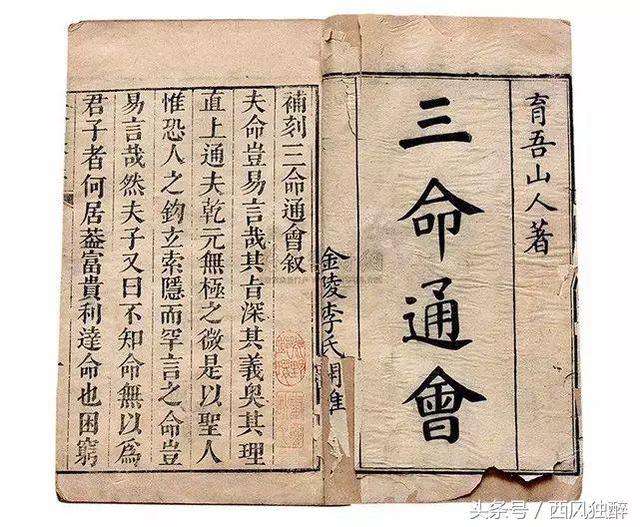 育吾山人著
三命通會
金陵李氏
補刻三命通會叙
夫命豈易言哉其旨深其義奥其理
直上通夫乾元無極之微是以聖人
惟恐人之鈎立索隱而罕言之命豈
易言哉然夫子又曰不知命無以為
君子者何居葢富貴利達命也困窮
头条号/西风独醉